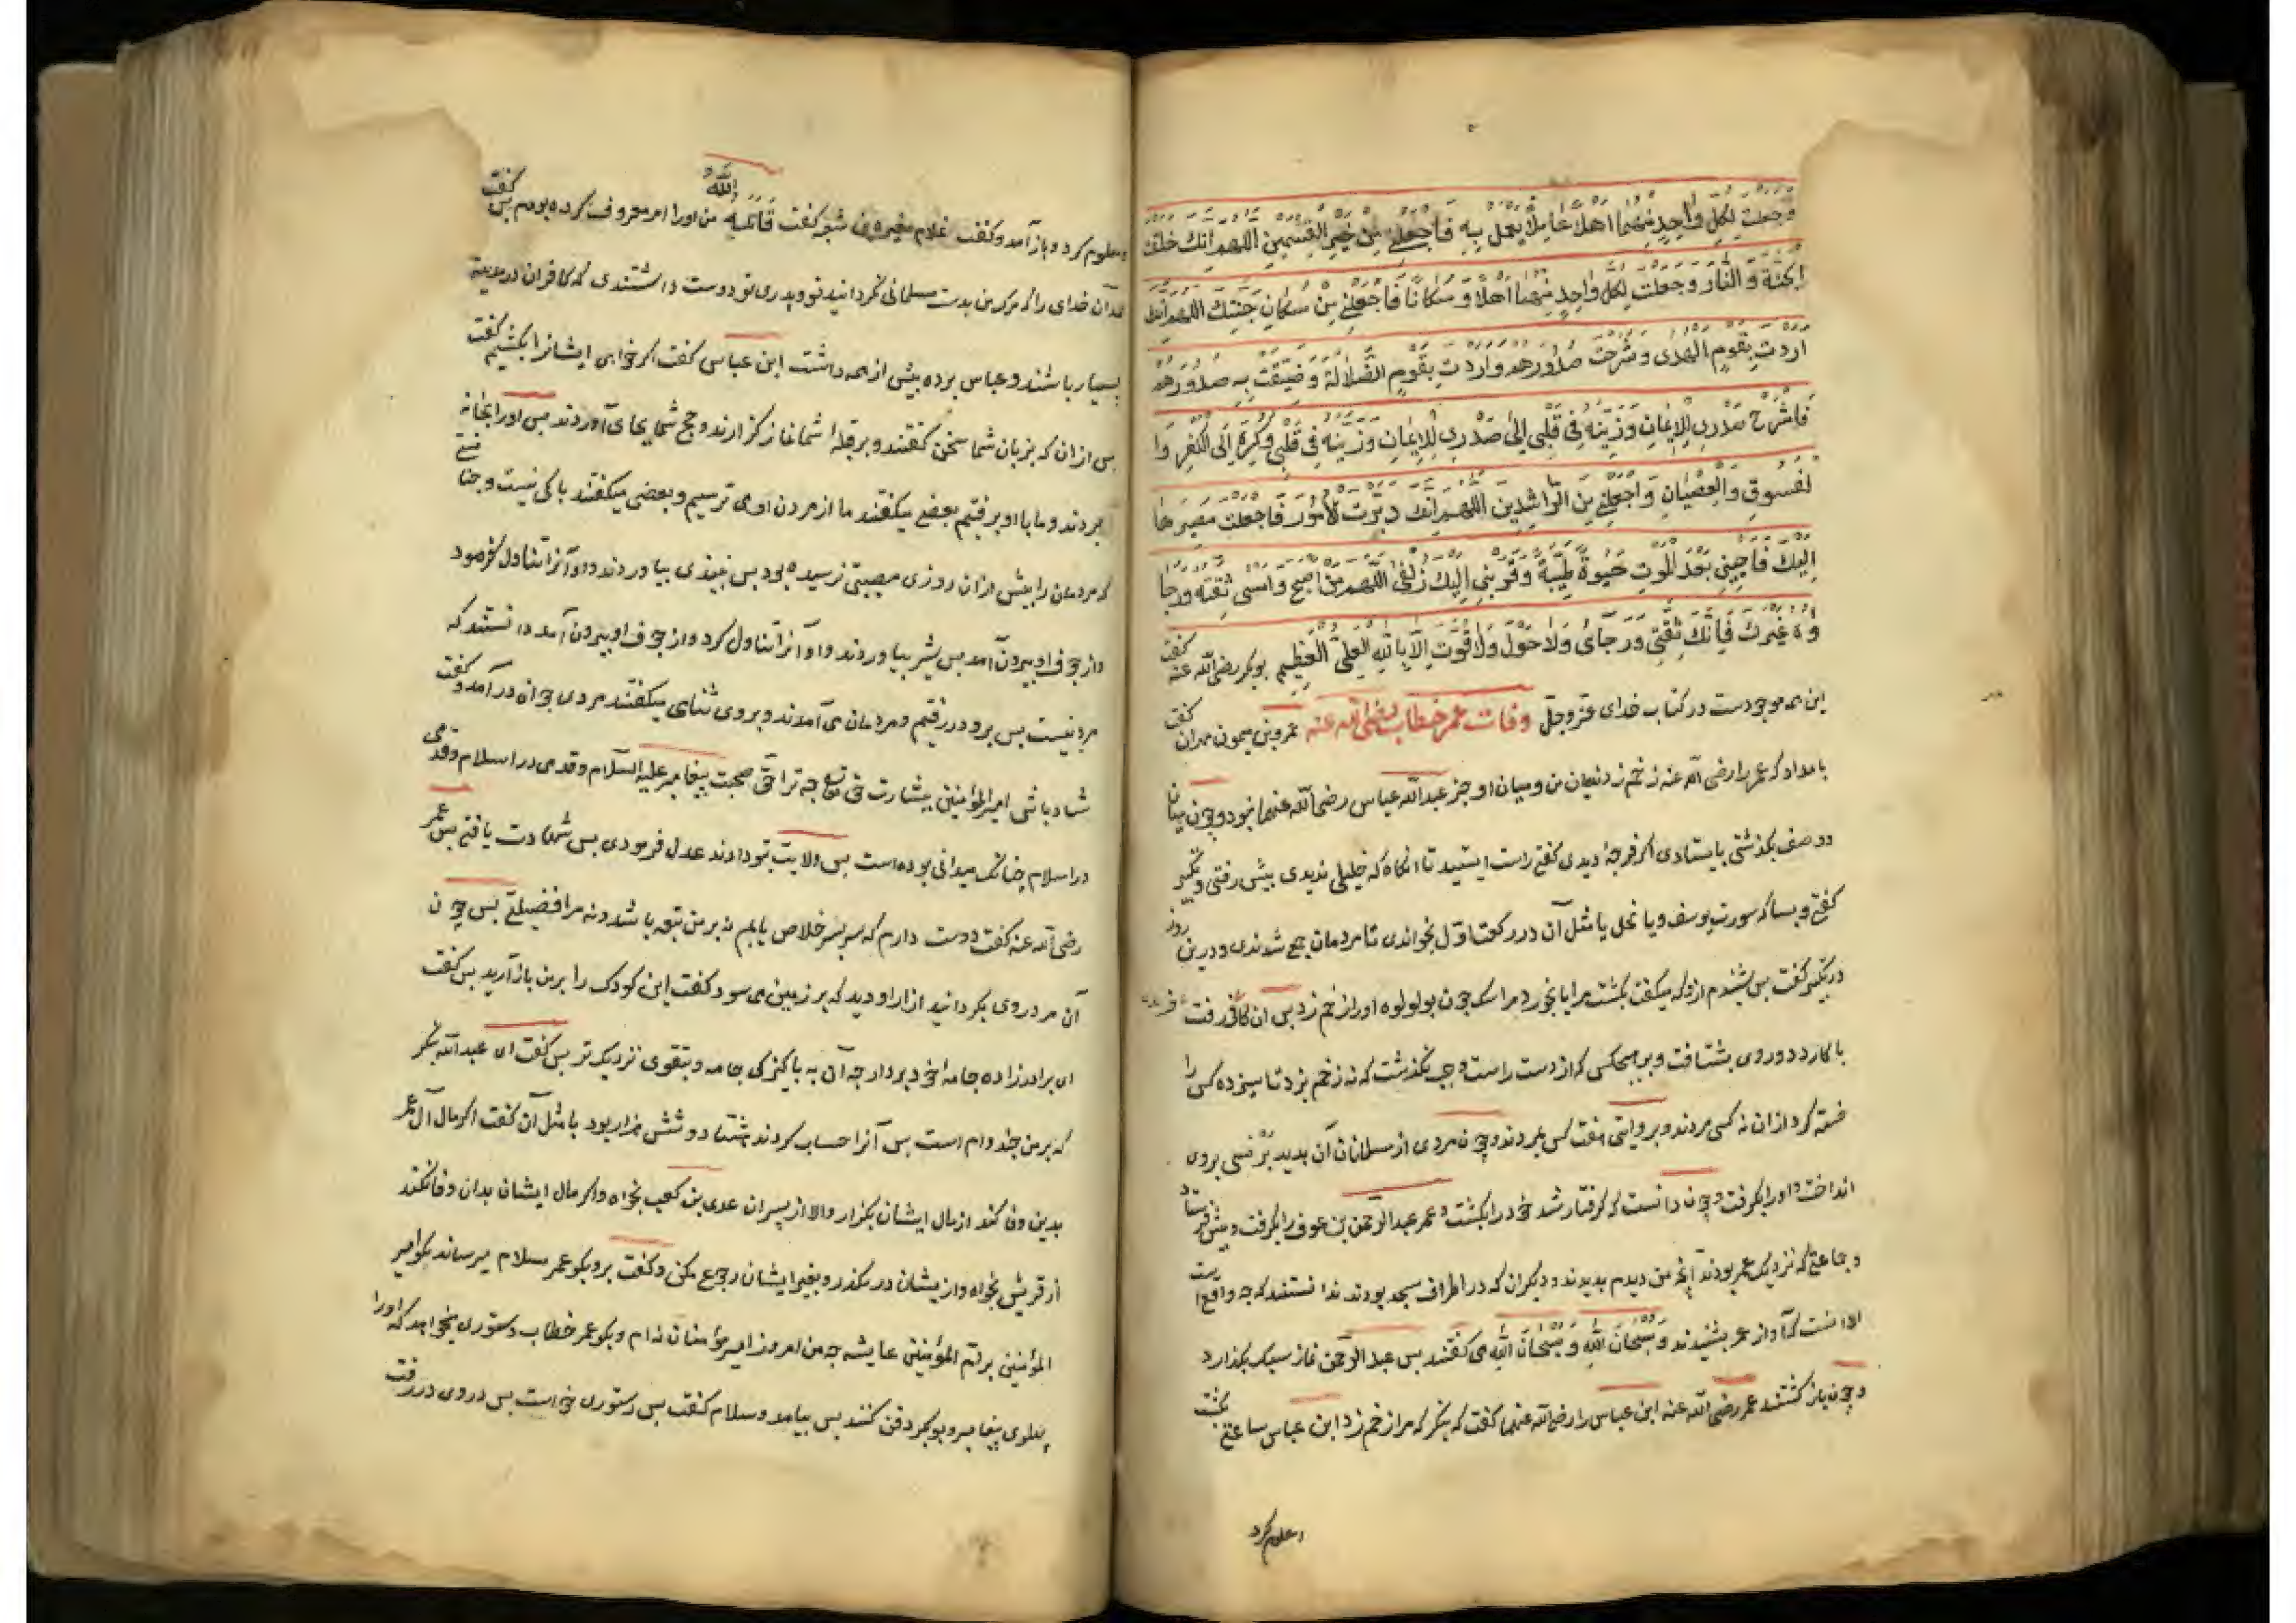 وجعلت لكل واحد منهما اهلا عاملا يعمل به فاجعلنى من خير القسمين اللهم انك خلقت
الجنة والنار وجعلت لكل واحد منهما اهلا و سكانا فاجعلنى من سكان جنتك اللهم انك
اردت بقوم الهدى وشرحت صدورهم واردت بقوم الضلالة وضيقت به صدورهم
فاشرح صدرى للايمان وزينه فى قلبى الى صدرى للايمان وزينه فى قلبى وكره الى الكفر وا
لفسوق والعصيان واجعلنى من الراشدين اللهم انك دبرت الامور فاجعلت مصيرها
اليك فاحينى بعد الموت حيوة طيبة وقربنى اليك زلفى اللهم من اصبح وامسى ثقته ورجا
ؤه غيرك فانك ثقتى ورجاى ولا حول ولا قوت الا بالله العلى العظيم بوبكر رضى الله عنه كفت
اين همه موجودست در كتاب خداى عز وجل وفات عمر خطاب رضى الله عنه عمرو بن ميمون مهران كفت
بامداد كه عمر را رضى الله عنه زخم زدند ميان من وميان او جز عبدالله عباس رضى الله عنهما نبود وچون ميان
دو صف بكذشتى بايستادى اكر فرجه ديدى كفتى راست ايستيد تا انكاه كه خللى نديدى پيش رفتى وتكبير
كفتى وبسا كه سورت يوسف ويا نحل يا مثل آن در ركعت اول بخواندى تا مردمان جمع شدندى ودرين روز
در تكبير كفت پس شنيدم ازو كه ميكفت بكشت مرا يا بخورد مرا سك چون بولولوه او را زخم زد پس آن كافر رفت
با كارد دوروى بشتافت وبر هيچكس كه از دست راست وچپ نكذشت كه نه زخم بزد تا سيزده كس را
خسته كرد ازان نه كس مردند وبروايتى هفت كس مردند وچون مردى از مسلمانان آن بديد برنسى بروى
انداخت واورا بكرفت وچون دانست كه كرفتار شد خود را بكشت وعمر عبدالرحمن بن عوف را بكرفت وپيش فرستاد
وجماعتى كه نزديك عمر بودند آنچه من ديدم بديدند وديكران كه در اطراف مسجد بودند ندانستند كه چه واقع است
الا آنست كه آواز عمر بشنيدند وسبحان الله وسبحان الله مى كفتند پس عبدالرحمن نماز سبك بكذارد
وچون باز كشتند عمر رضى الله عنه ابن عباس را رضى الله عنهما كفت كه بنكر كه مرا زخم زد ابن عباس ساعتى بكشت
معلوم كرد
ومعلوم كرد وباز آمد وكفت غلام مغيره بن شعبه كفت قاتله الله من اورا امر معروف كرده بودم پس كفت
حمد آن خداى را كه مرك من بدست مسلمانى نكردانيد تو وپدرى تو دوست داشتندى كه كافران در مدينة
بسيار باشند وعباس برده بيش از همه داشت ابن عباس كفت اكر خواهى ايشانرا بكشيم كفت
پس ازان كه بزبان شما سخن كفتند وبر قبلهٔ شما نماز كزاردند وحج شما بجاى آوردند پس اورا بخانه
بردند وما با او برفتيم بعضى ميكفتند ما از مردن او مى ترسيم وبعضى ميكفتند باكى نيست وچنانستى
كه مردمان را پيش ازان روزى مصيبتى نرسيده بود پس نبيذى بياوردند واو آنرا تناول فرمود
واز جوف او بيرون آمد پس شير بياوردند واو آنرا تناول كرد واز جوف او بيرون آمد دانستند كه
مردنيست پس برو در رفتيم ومردمان مى آمدند وبروى ثناى ميكفتند مردى جوان در آمد وكفت
شاد باش امير المؤمنين ببشارت حق تع چه ترا حق صحبت پيغامبر عليه السلام وقدمى در اسلام وقدمى
در اسلام چنانك ميدانى بوده است پس ولايت بتو دادند عدل فرمودى پس شهادت يافتى پس عمر
رضى الله عنه كفت دوست دارم كه سربسر خلاص يابم نه بر من تبعه باشد ونه مرا فضيلتى پس چون
آن مرد روى بكردانيد ازار او ديد كه بر زمين مى سود كفت اين كودك را بر من باز آريد پس كفت
اى برادرزاده جامه خود بردار چه آن به پاكيزكى جامه وبتقوى نزديك تر پس كفت اى عبدالله بنكر
كه بر من چند وام است پس آنرا حساب كردند هشتاد وشش هزار بود يا مثل آن كفت اكر مال آل عمر
بدين وفا كند از مال ايشان بكزار والا از پسران عدى بن كعب بخواه واكر مال ايشان بدان وفا نكند
از قريش بخواه وازيشان در مكذر وبغير ايشان رجوع مكن وكفت برو بكو عمر سلام ميرساند بكو امير
المؤمنين بر ام المؤمنين عايشه چه من امروز امير مؤمنان نه ام وبكو عمر خطاب دستورى ميخواهد كه اورا
پهلوى پيغامبر وبوبكر دفن كنند پس بيامد وسلام كفت پس دستورى خواست پس در وى در رفت